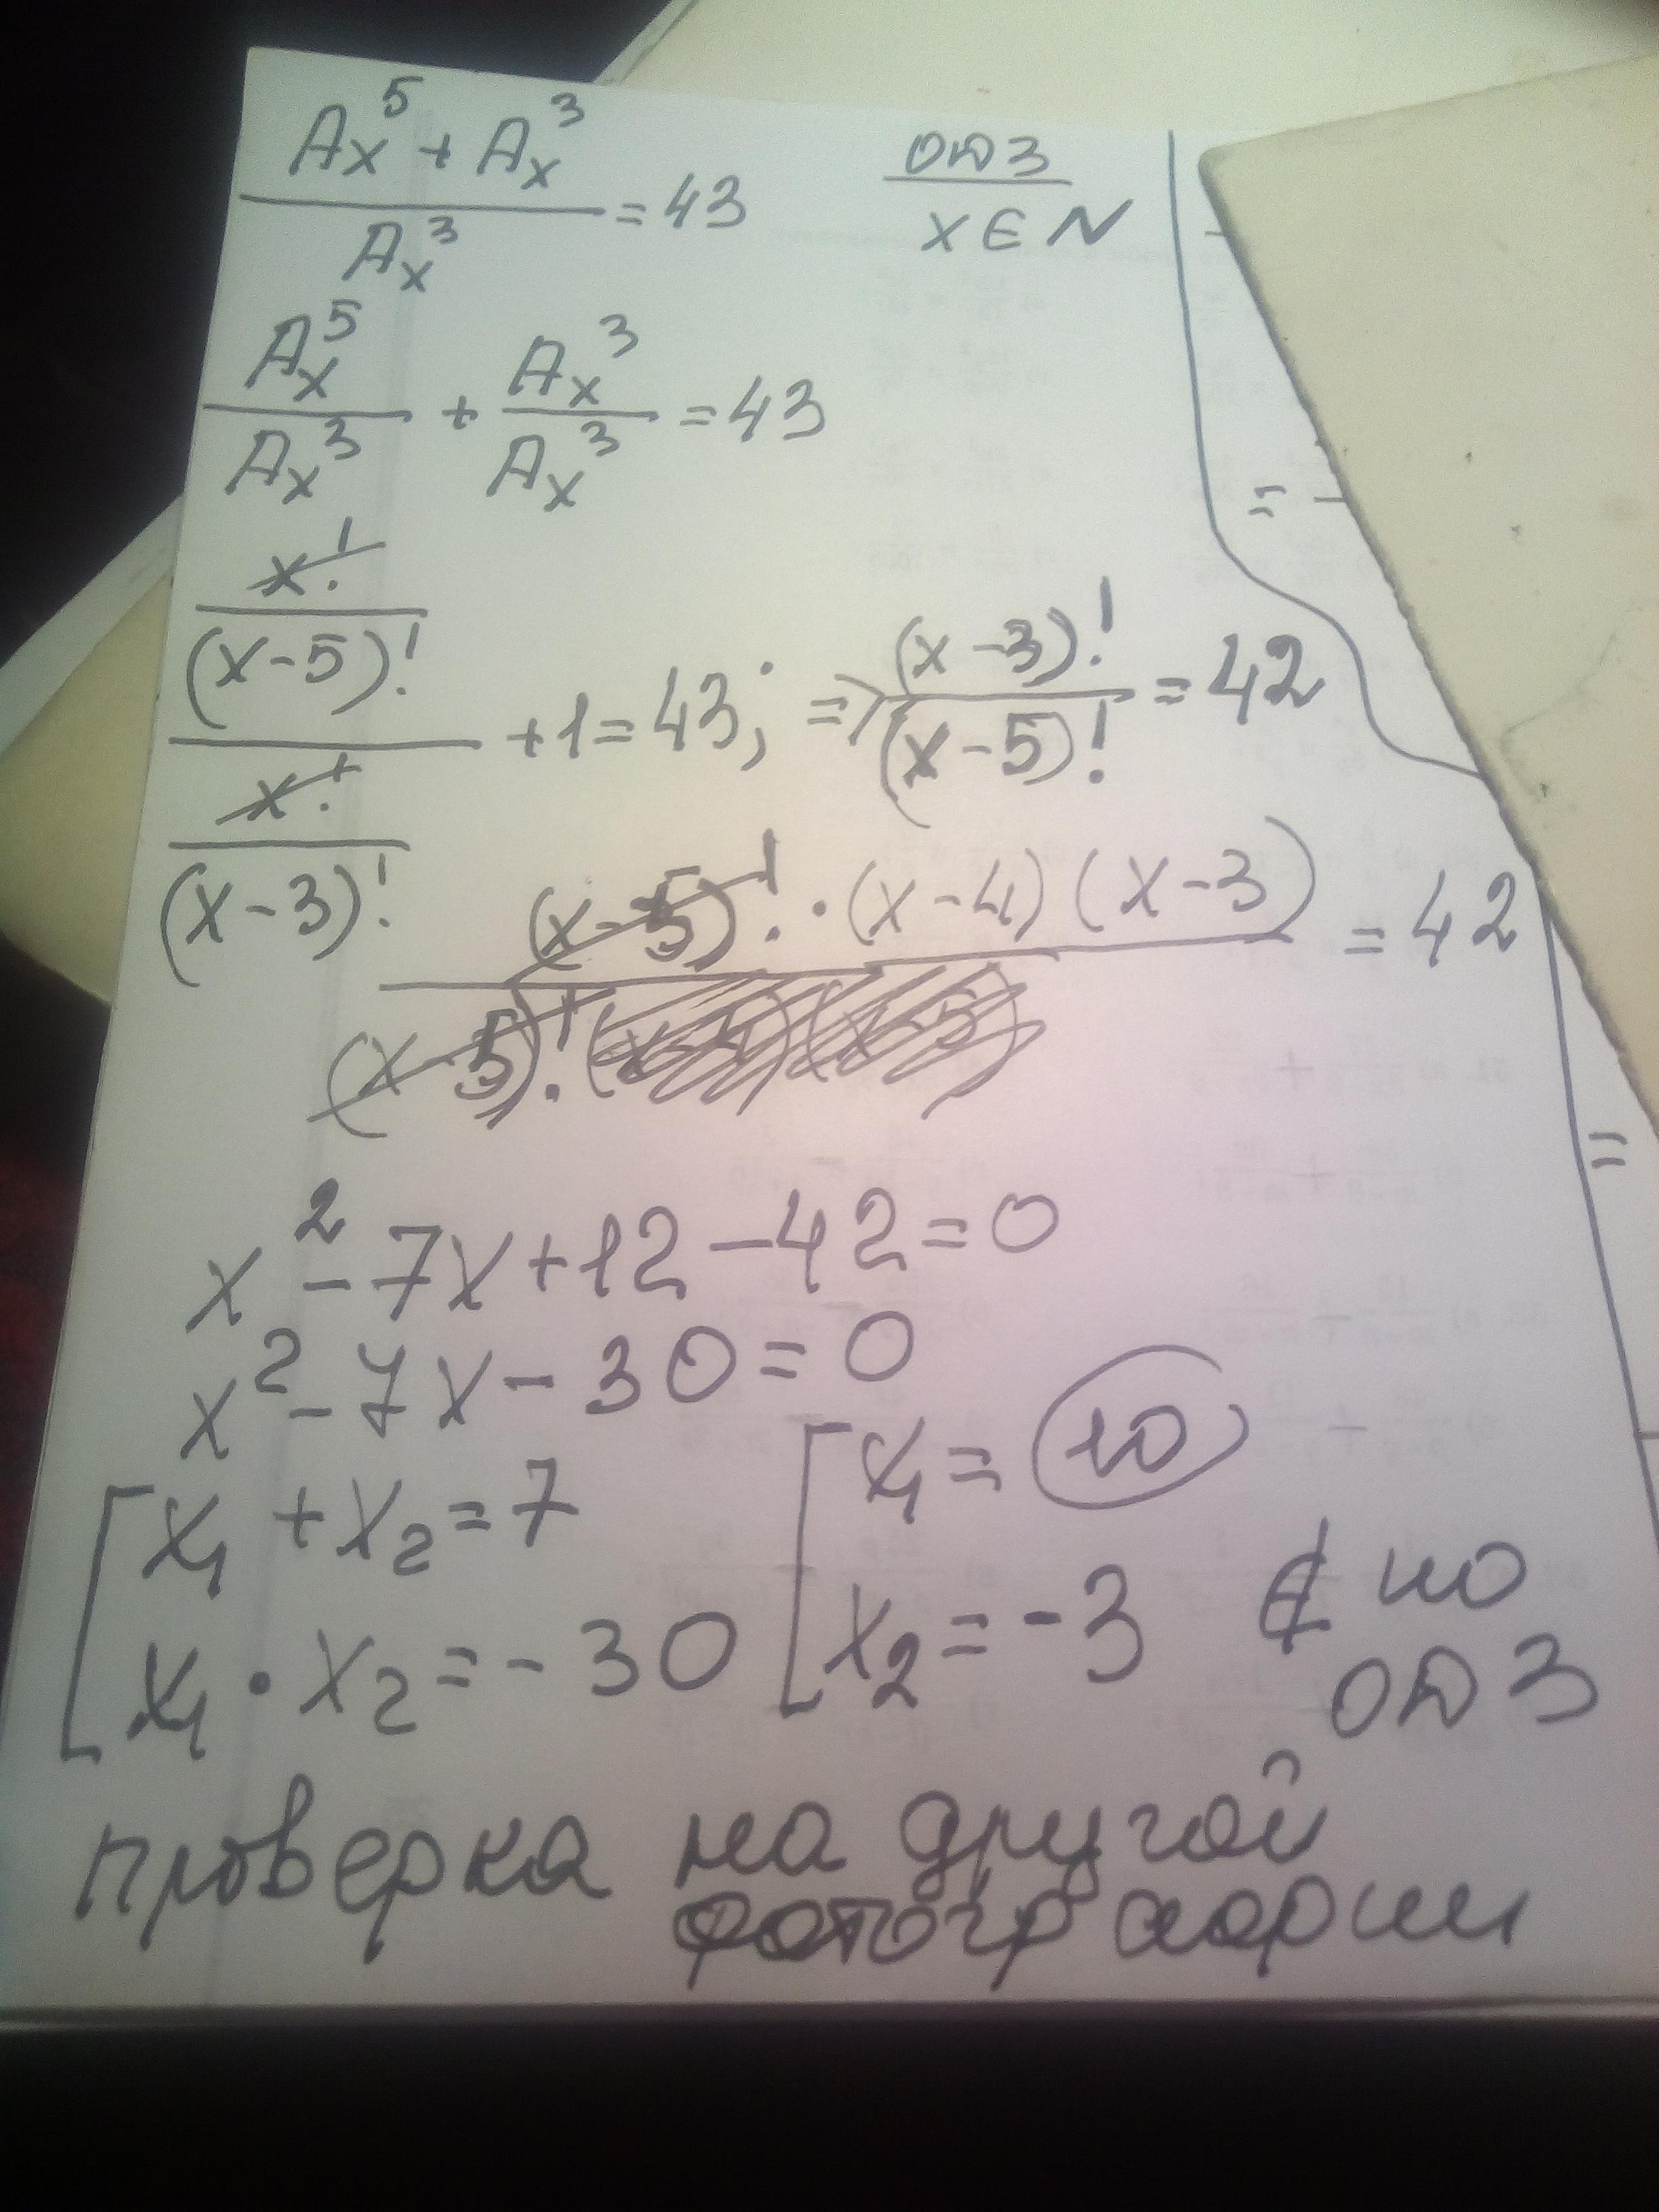 Aₓ⁵ + Aₓ³ / Aₓ³ = 43 ОДЗ
x ∈ N
Aₓ⁵ / Aₓ³ + Aₓ³ / Aₓ³ = 43
x! / (x-5)! / x! / (x-3)! + 1 = 43; => (x-3)! / (x-5)! = 42
(x-5)! · (x-4)(x-3) / (x-5)! = 42
x² - 7x + 12 - 42 = 0
x² - 7x - 30 = 0
[ x₁ + x₂ = 7 [ x₁ = 10
x₁ · x₂ = -30 x₂ = -3 ∉ по
ОДЗ
проверка на другой
фотографии